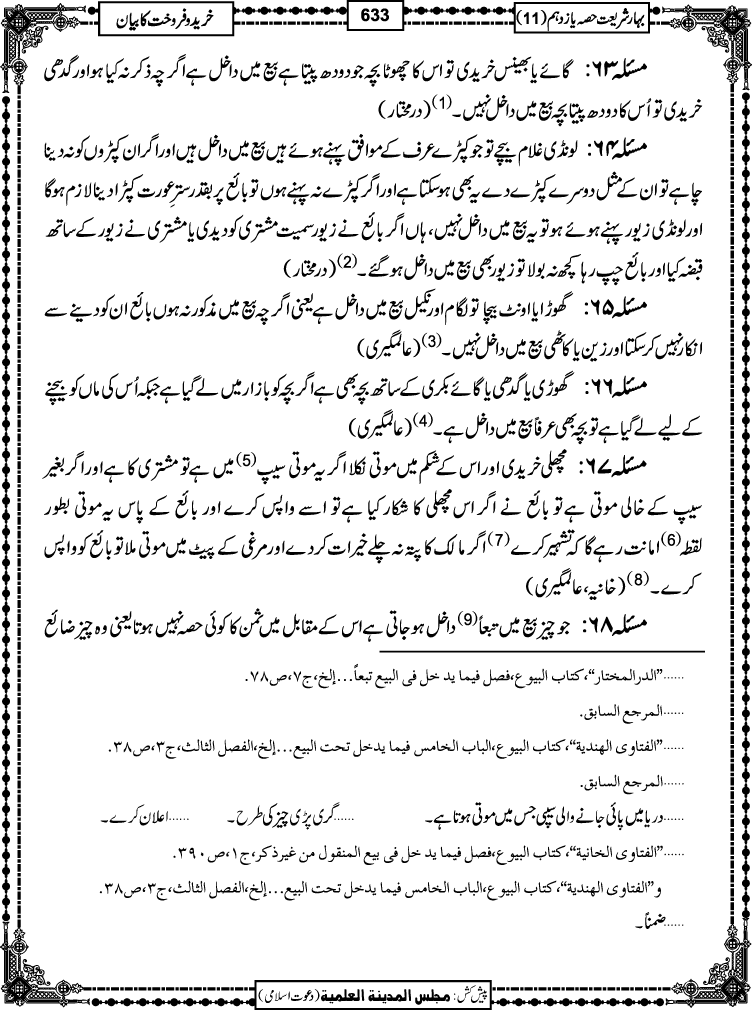 بہارِ شریعت حصہ یازدہم (11)
633
خرید و فروخت کا بیان
مسئلہ ۶۳: گائے یا بھینس خریدی تو اس کا چھوٹا بچہ جو دودھ پیتا ہے بیع میں داخل ہے اگرچہ ذکر نہ کیا ہو اور گدھی
خریدی تو اُس کا دودھ پیتا بچہ بیع میں داخل نہیں۔(1) (درمختار)
مسئلہ ۶۴: لونڈی غلام بیچے تو جو کپڑے عرف کے موافق پہنے ہوئے ہیں بیع میں داخل ہیں اور اگر ان کپڑوں کو نہ دینا
چاہے تو ان کے مثل دوسرے کپڑے دے یہ بھی ہوسکتا ہے اور اگر کپڑے نہ پہنے ہوں تو بائع پر بقدر سترِ عورت کپڑا دینا لازم ہوگا
اور لونڈی زیور پہنے ہوئے ہو تو یہ بیع میں داخل نہیں، ہاں اگر بائع نے زیور سمیت مشتری کو دیدی یا مشتری نے زیور کے ساتھ
قبضہ کیا اور بائع چپ رہا کچھ نہ بولا تو زیور بھی بیع میں داخل ہوگئے۔(2) (درمختار)
مسئلہ ۶۵: گھوڑا یا اونٹ بیچا تو لگام اور نکیل بیع میں داخل ہے یعنی اگرچہ بیع میں مذکور نہ ہوں بائع ان کو دینے سے
انکار نہیں کرسکتا اور زین یا کاٹھی بیع میں داخل نہیں۔(3) (عالمگیری)
مسئلہ ۶۶: گھوڑی یا گدھی یا گائے بکری کے ساتھ بچہ بھی ہے اگر بچہ کو بازار میں لے گیا ہے جبکہ اُس کی ماں کو بیچنے
کے لیے لے گیا ہے تو بچہ بھی عرفاً بیع میں داخل ہے۔(4) (عالمگیری)
مسئلہ ۶۷: مچھلی خریدی اور اس کے شکم میں موتی نکلا اگر یہ موتی سیپ(5) میں ہے تو مشتری کا ہے اور اگر بغیر
سیپ کے خالی موتی ہے تو بائع نے اگر اس مچھلی کا شکار کیا ہے تو اسے واپس کرے اور بائع کے پاس یہ موتی بطور
لقطہ(6) امانت رہے گا کہ تشہیر کرے(7) اگر مالک کا پتہ نہ چلے خیرات کردے اور مرغی کے پیٹ میں موتی ملا تو بائع کو واپس
کرے۔(8) (خانیہ، عالمگیری)
مسئلہ ۶۸: جو چیز بیع میں تبعاً(9) داخل ہوجاتی ہے اس کے مقابل میں ثمن کا کوئی حصہ نہیں ہوتا یعنی وہ چیز ضائع
......”الدرالمختار“، کتاب البیوع، فصل فیما یدخل فی البیع تبعاً...إلخ، ج۷، ص۷۸.
......المرجع السابق.
......”الفتاوی الھندیة“، کتاب البیوع، الباب الخامس فیما یدخل تحت البیع...إلخ، الفصل الثالث، ج۳، ص۳۸.
......المرجع السابق.
......دریا میں پائی جانے والی سیپی جس میں موتی ہوتا ہے۔ ......گری پڑی چیز کی طرح۔ ......اعلان کرے۔
......”الفتاوی الخانیة“، کتاب البیوع، فصل فیما یدخل فی بیع المنقول من غیر ذکر، ج۱، ص۳۹۰.
و”الفتاوی الھندیة“، کتاب البیوع، الباب الخامس فیما یدخل تحت البیع...إلخ، الفصل الثالث، ج۳، ص۳۸.
......ضمناً۔
پیش کش: مجلس المدینة العلمیة (دعوت اسلامی)